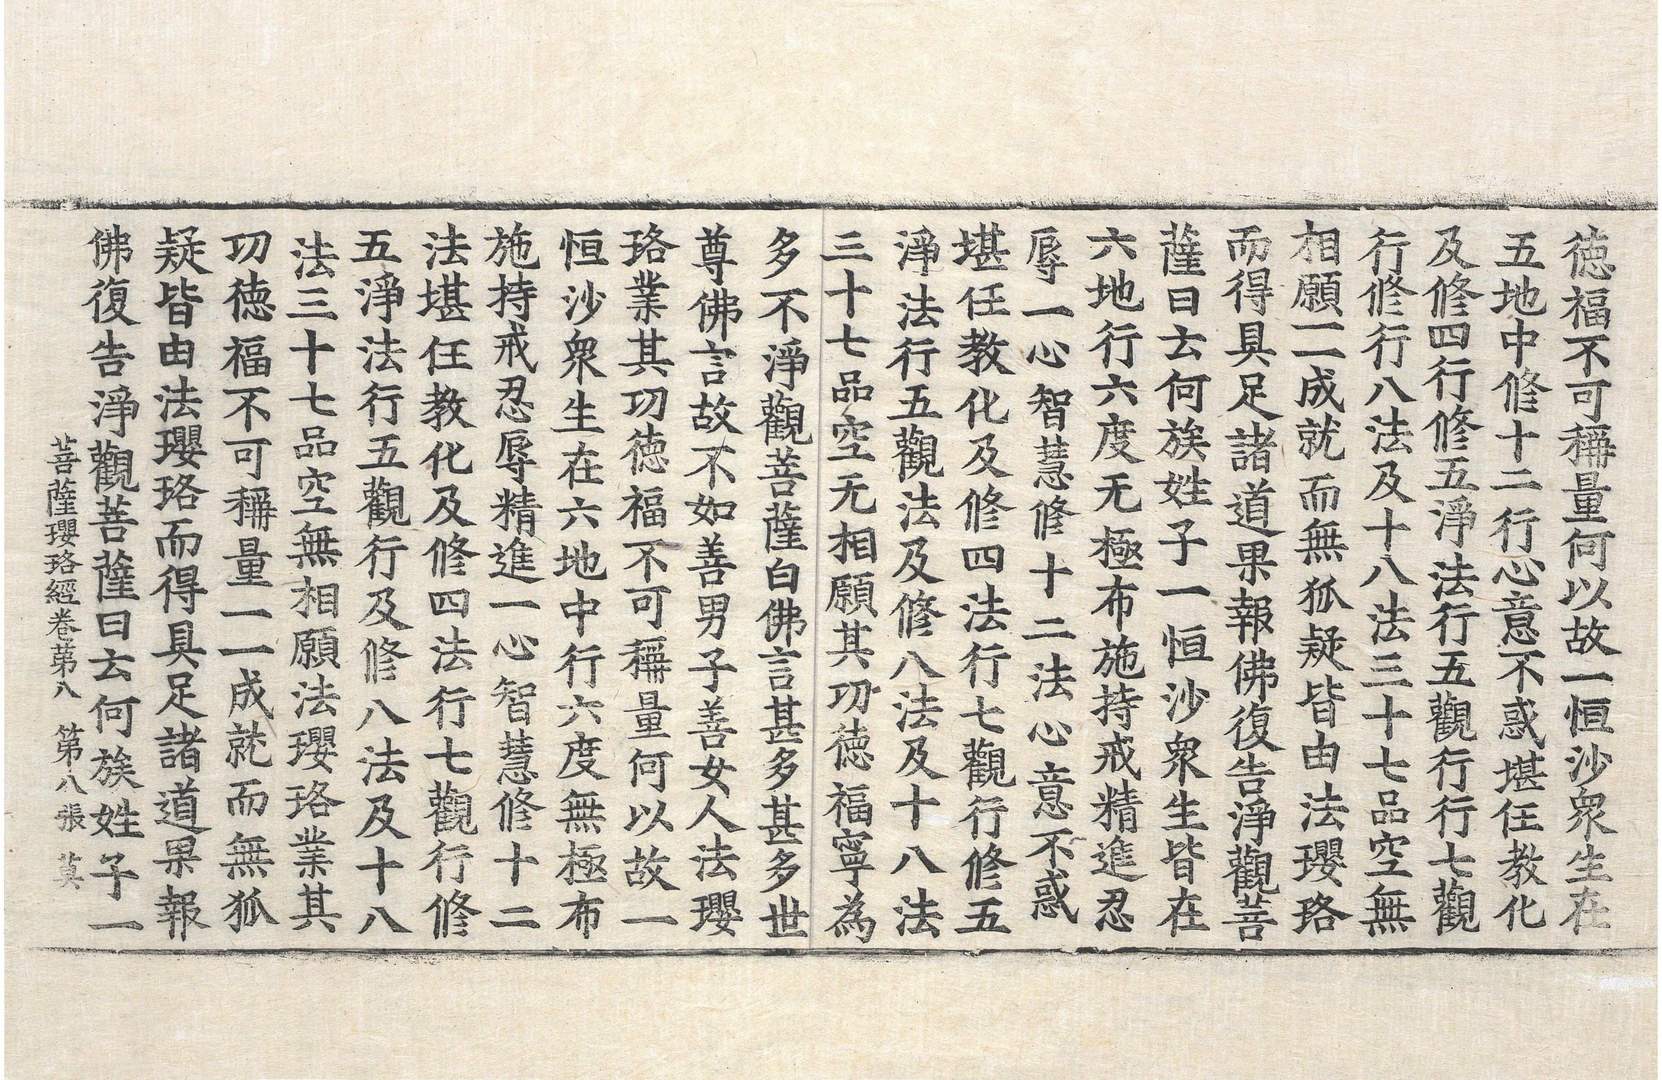 徳福不可稱量何以故一恒沙衆生在
五地中修十二行心意不惑堪任教化
及修四行修五淨法行五觀行行七觀
行修行八法及十八法三十七品空無
相願一一成就而無狐疑皆由法瓔珞
而得具足諸道果報佛復告淨觀菩
薩曰云何族姓子一恒沙衆生皆在
六地行六度无極布施持戒精進忍
辱一心智慧修十二法心意不惑
堪任教化及修四法行七觀行修五
淨法行五觀法及修八法及十八法
三十七品空无相願其功徳福寧為
多不淨觀菩薩白佛言甚多甚多世
尊佛言故不如善男子善女人法瓔
珞業其功徳福不可稱量何以故一
恒沙衆生在六地中行六度無極布
施持戒忍辱精進一心智慧修十二
法堪任教化及修四法行七觀行修
五淨法行五觀行及修八法及十八
法三十七品空無相願法瓔珞業其
功徳福不可稱量一一成就而無狐
疑皆由法瓔珞而得具足諸道果報
佛復告淨觀菩薩曰云何族姓子一
菩薩瓔珞經卷第八　第八張　莫